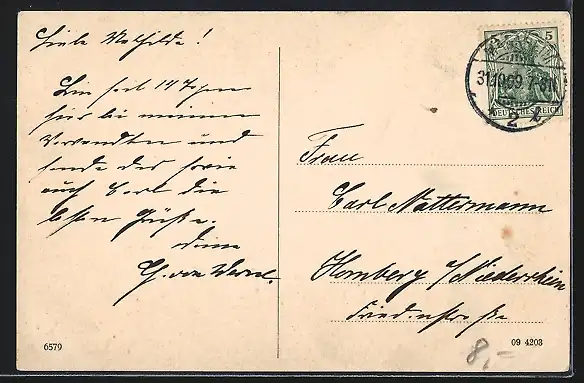 Liebe Mathilde!
Bin seit 14 Tagen
hier bei meinen
Verwandten und
sende Dir sowie
auch Carl die
besten Grüße.
Deine
G. von
5
31.10.09.7-8N
DEUTSCHES REICH
2
Frau
Carl Nattermann
Homberg /Niederrhein
Friedenstraße
6579
09 4203
8,-